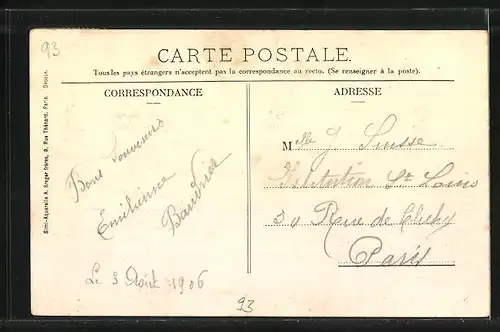 93
CARTE POSTALE.
Tous les pays étrangers n'acceptent pas la correspondance au recto. (Se renseigner à la poste).
CORRESPONDANCE
Bons Souvenirs
Emilienne
Baudrier
Le 3 Août 1906
93
ADRESSE
Mlle J Suisse
St Louis
Rue de Clichy
Paris
Simi-Aquarelle A. Breger frères, 9, Rue Thénard, Paris. Déposé.